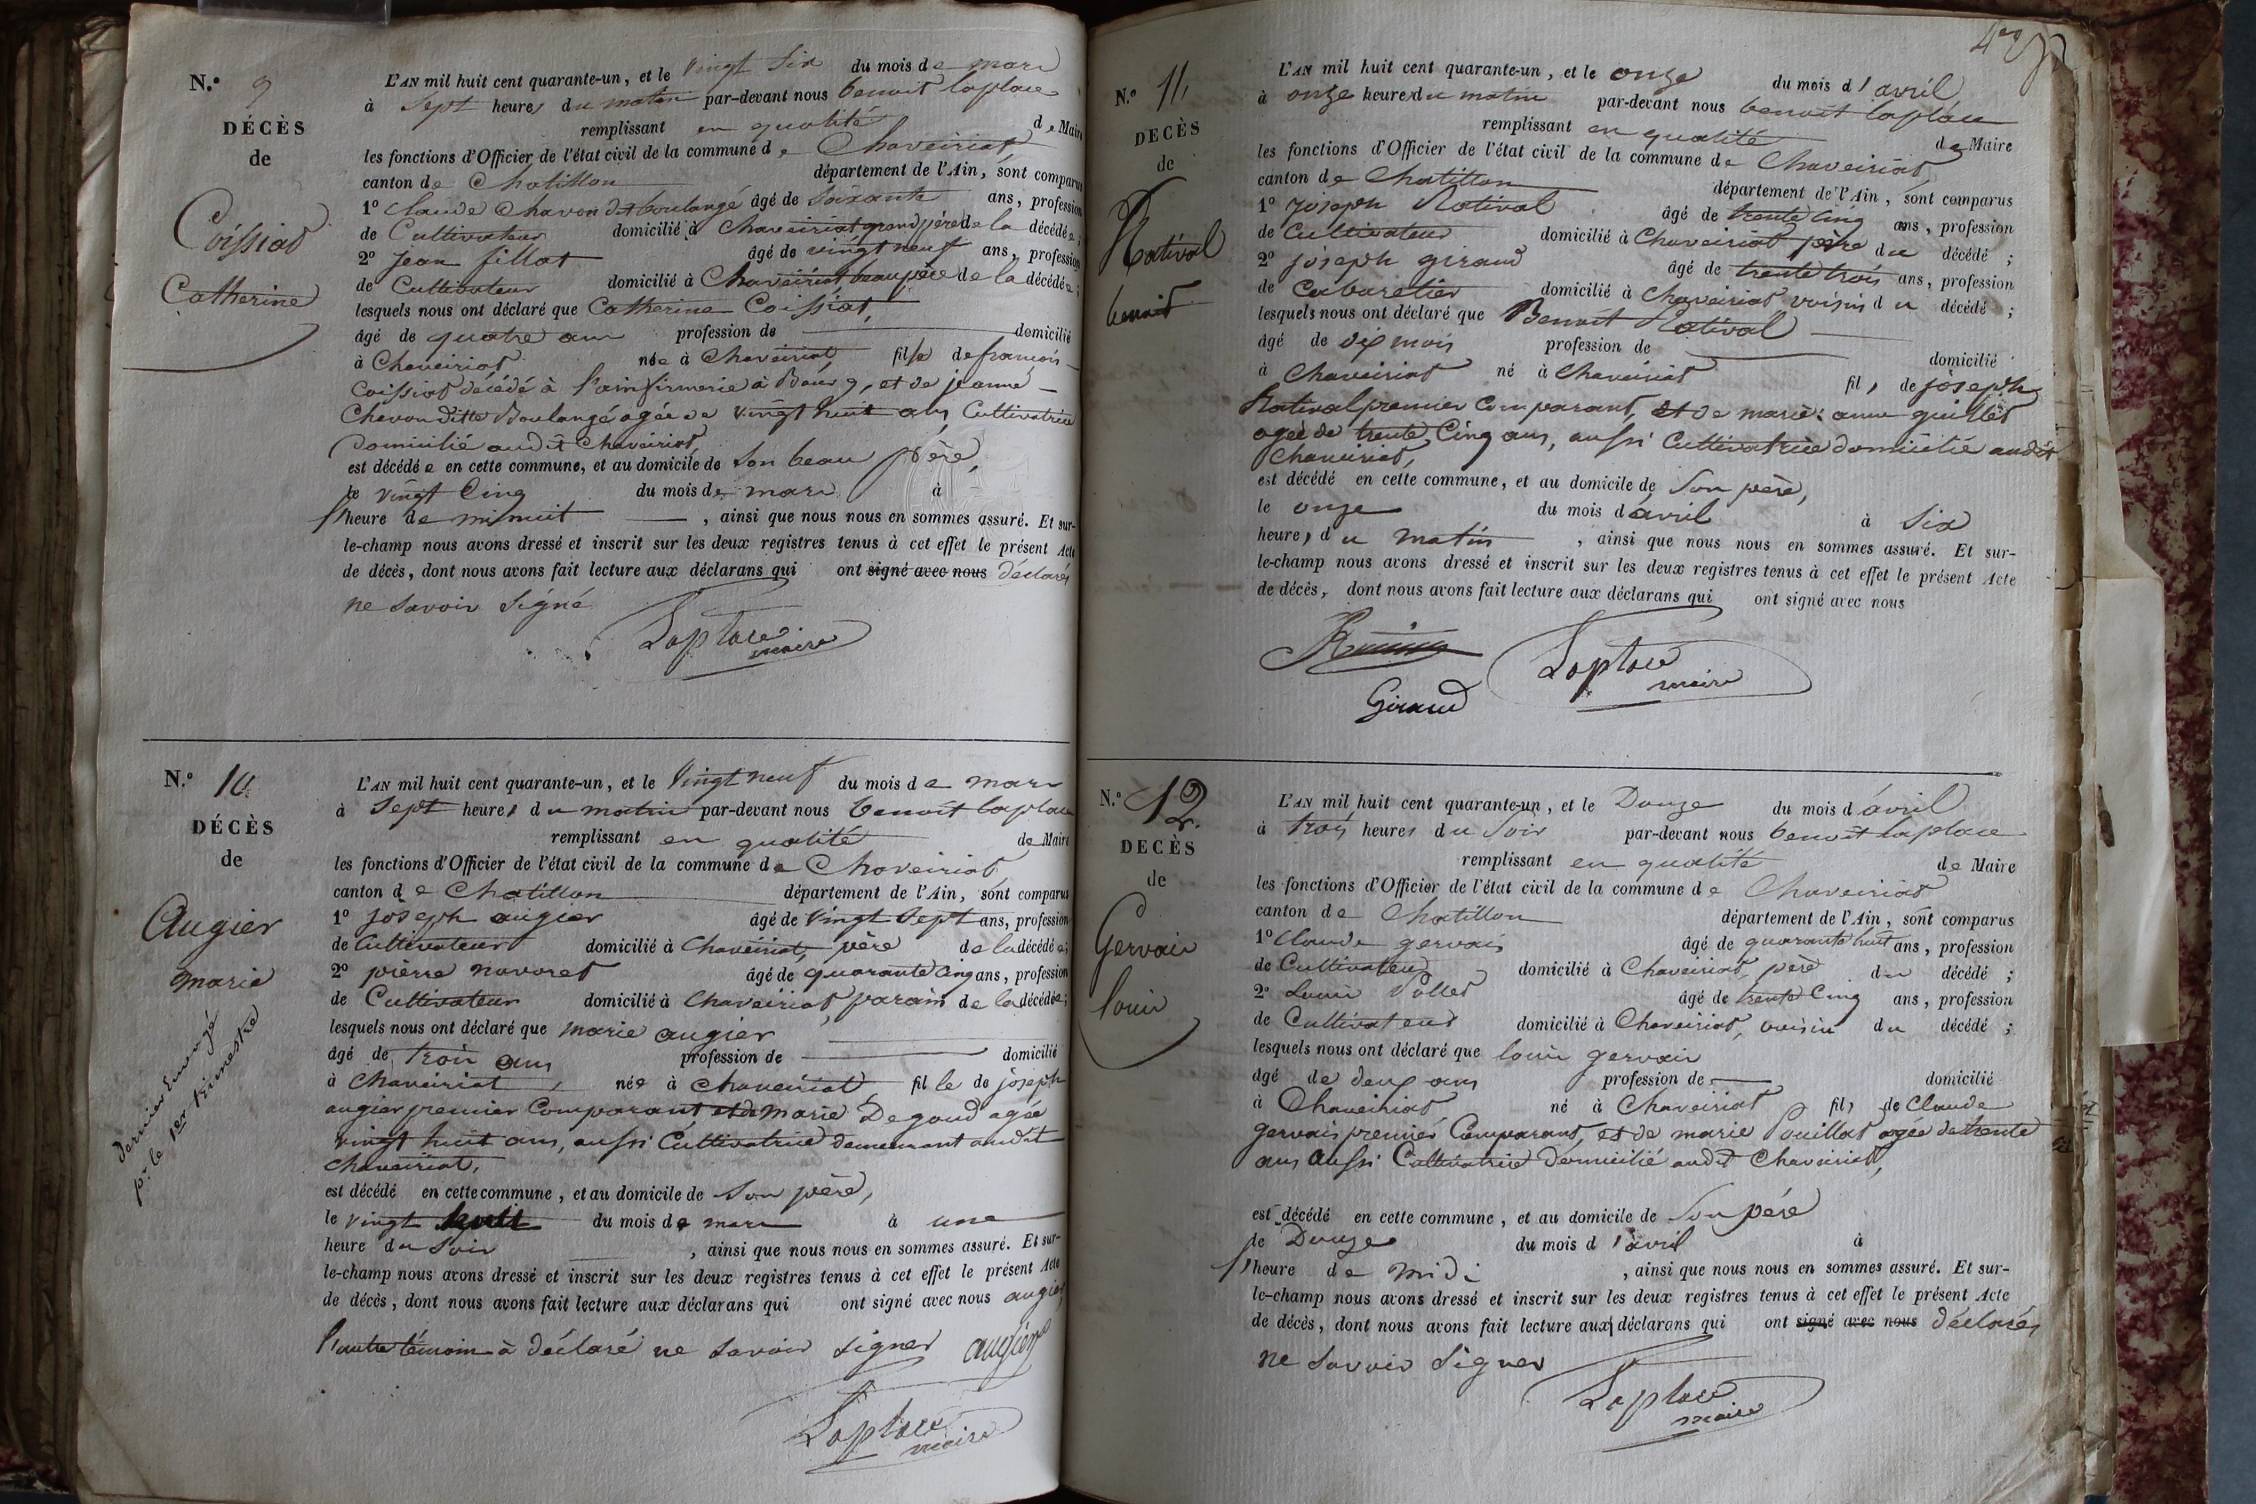 N.° 9
DÉCÈS
de
Coissiat
Catherine
L'AN mil huit cent quarante-un, et le vingt six du mois de mars
à sept heures du matin par-devant nous benoit laplace
remplissant en qualité de Maire
les fonctions d'Officier de l'état civil de la commune de Chaveiriat,
canton de Chatillon département de l'Ain, sont comparus
1° Claude Chavon dit boulangé âgé de soixante ans, profession
de Cultivateur domicilié à Chaveiriat grand père de la décédée;
2° jean fillot âgé de vingt neuf ans, profession
de Cultivateur domicilié à Chaveiriat beau père de la décédée;
lesquels nous ont déclaré que Catherine Coissiat,
âgé de quatre ans profession de domicilié
à Chaveiriat née à Chaveiriat, fille de francois
Coissiat décédé à l'ainfirmerie à Bourg, et de jeanne
Chevon ditte Boulangé agée de vingt huit ans, Cultivatrice
Domicilié audit Chaveiriat,
est décédée en cette commune, et au domicile de son beau père,
le vingt Cinq du mois de mars à
l'heure de minuit , ainsi que nous nous en sommes assuré. Et sur-
le-champ nous avons dressé et inscrit sur les deux registres tenus à cet effet le présent Acte
de décès, dont nous avons fait lecture aux déclarans qui ont signé avec nous déclarés
ne savoir signé
Laplace
maire
N.° 10
DÉCÈS
de
Augier
marie
dernier Envoyé
pr. le 1er trimestre
L'AN mil huit cent quarante-un, et le vingt neuf du mois de mars
à sept heures du matin par-devant nous benoit laplace
remplissant en qualité de Maire
les fonctions d'Officier de l'état civil de la commune de Chaveiriat
canton de Chatillon département de l'Ain, sont comparus
1° joseph augier âgé de vingt sept ans, profession
de Cultivateur domicilié à Chaveiriat, père de la décédée;
2° pierre navoret âgé de quarante cinq ans, profession
de Cultivateur domicilié à Chaveiriat, parain de la décédée;
lesquels nous ont déclaré que marie augier
âgé de trois ans profession de domicilié
à Chaveiriat, née à Chaveiriat, fille de joseph
augier premier Comparant et de marie Degoud agée
vingt huit ans, aussi Cultivatrice demeurant audit
Chaveiriat,
est décédé en cette commune, et au domicile de son père,
le vingt huit du mois de mars à une
heure du soir , ainsi que nous nous en sommes assuré. Et sur-
le-champ nous avons dressé et inscrit sur les deux registres tenus à cet effet le présent Acte
de décès, dont nous avons fait lecture aux déclarans qui ont signé avec nous augier,
l'autre témoin à déclaré ne savoir signer augier
Laplace
maire
N.° 11,
DÉCÈS
de
Ratival
benoit
L'AN mil huit cent quarante-un, et le onze du mois d'avril
à onze heures du matin par-devant nous benoit laplace
remplissant en qualité de Maire
les fonctions d'Officier de l'état civil de la commune de Chaveiriat,
canton de Chatillon département de l'Ain, sont comparus
1° joseph Ratival âgé de trente cinq ans, profession
de Cultivateur domicilié à Chaveiriat père du décédé;
2° joseph giraud âgé de trente trois ans, profession
de Cabaretier domicilié à Chaveiriat voisin du décédé;
lesquels nous ont déclaré que Benoit Ratival
âgé de dix mois profession de domicilié
à Chaveiriat né à Chaveiriat fils de joseph
Ratival premier Comparant, et de marie anne guillet
agée de trente Cinq ans, aussi Cultivatrice domicilié audit
Chaveiriat,
est décédé en cette commune, et au domicile de son père,
le onze du mois d'avril à six
heures du matin , ainsi que nous nous en sommes assuré. Et sur-
le-champ nous avons dressé et inscrit sur les deux registres tenus à cet effet le présent Acte
de décès, dont nous avons fait lecture aux déclarans qui ont signé avec nous
Laplace
maire
Giraud
N.° 12.
DÉCÈS
de
Gervais
louis
L'AN mil huit cent quarante-un, et le Douze du mois d'avril
à trois heures du soir par-devant nous benoit laplace
remplissant en qualité de Maire
les fonctions d'Officier de l'état civil de la commune de Chaveiriat
canton de Chatillon département de l'Ain, sont comparus
1° Claude gervais âgé de quarante huit ans, profession
de Cultivateur domicilié à Chaveiriat, père du décédé;
2° Louis Pollet âgé de trente Cinq ans, profession
de Cultivateur domicilié à Chaveiriat, voisin du décédé;
lesquels nous ont déclaré que louis gervais
âgé de deux ans profession de domicilié
à Chaveiriat né à Chaveiriat fils de Claude
gervais premier Comparant, et de marie Pouillat agée de trente
ans aussi Cultivatrice domicilié audit Chaveiriat,
est décédé en cette commune, et au domicile de son père
le Douze du mois d'avril à
l'heure de midi , ainsi que nous nous en sommes assuré. Et sur-
le-champ nous avons dressé et inscrit sur les deux registres tenus à cet effet le présent Acte
de décès, dont nous avons fait lecture aux déclarans qui ont signé avec nous déclarés
ne savoir signer
Laplace
maire